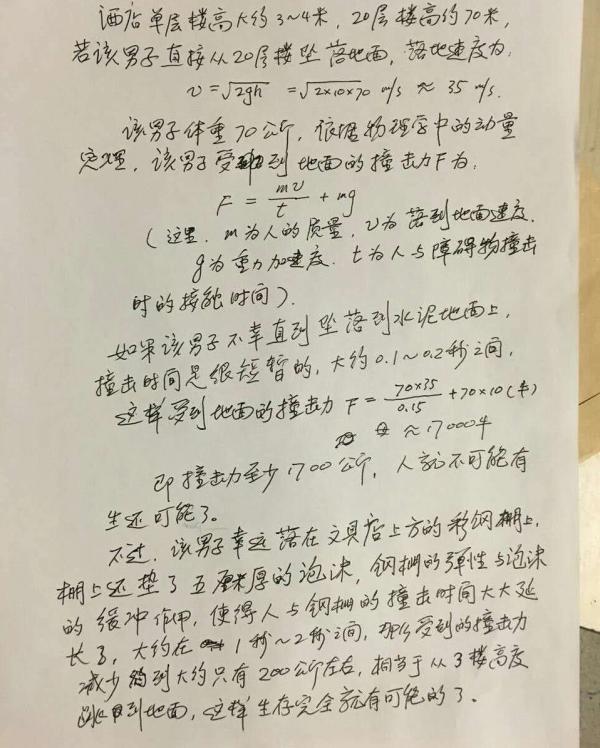 酒店单层楼高大约3~4米，20层楼高约70米，
若该男子直接从20层楼坠落地面，落地速度为：
v=√2gh =√2×10×70 m/s ≈ 35 m/s.
该男子体重70公斤，根据物理学中的动量
定理，该男子受到地面的撞击力F为：
F = mv/t + mg
(这里，m为人的质量，v为落到地面速度，
g为重力加速度，t为人与障碍物撞击
时的接触时间).
如果该男子不幸直到坠落到水泥地面上，
撞击时间是很短暂的，大约0.1~0.2秒之间，
这样受到地面的撞击力 F = 70×35/0.15 +70×10(牛)
≈ 17000牛
即撞击力至少1700公斤，人就不可能有
生还可能了。
不过，该男子幸运落在文具店上方的彩钢棚上，
棚上还垫了五厘米厚的泡沫，钢棚的弹性与泡沫
的缓冲作用，使得人与钢棚的撞击时间大大延
长了，大约在1秒~2秒之间，那么受到的撞击力
减少到大约只有200公斤左右，相当于从3楼高度
跳到地面，这样生存完全就有可能的了。